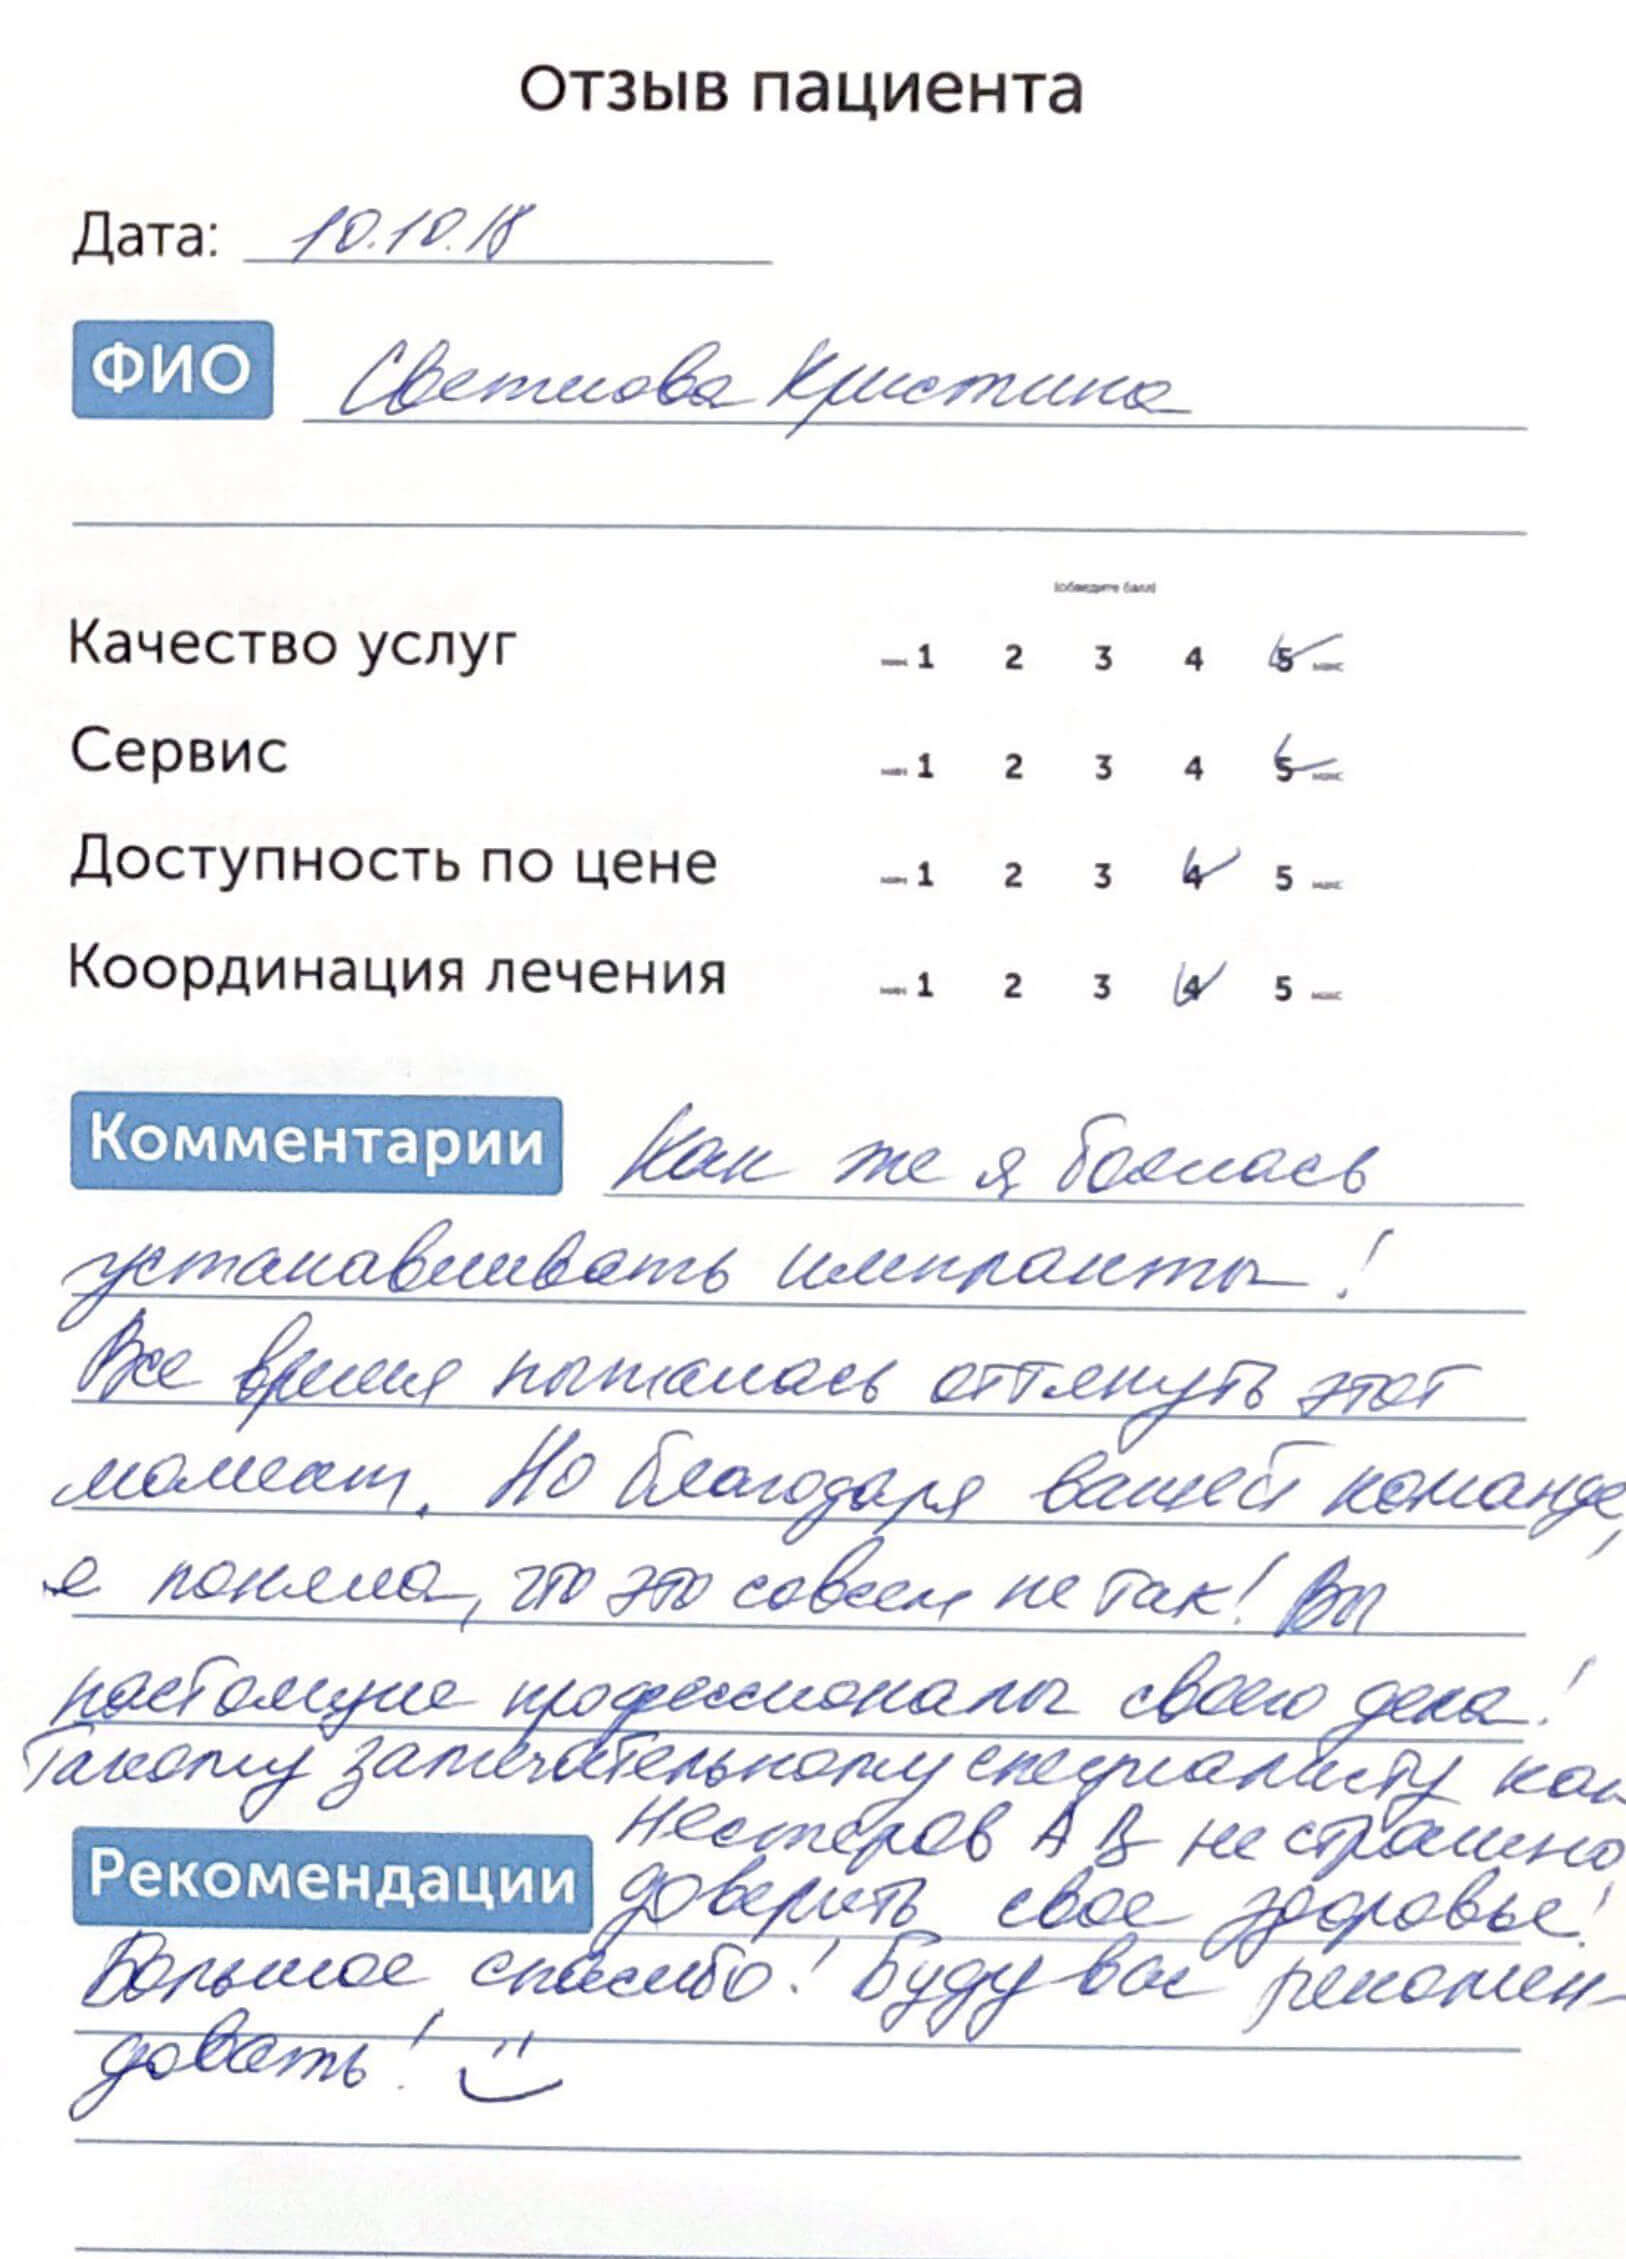 Отзыв пациента
Дата: 10.10.18
ФИО Светлова Кристина
(обведите балл)
Качество услуг мин 1 2 3 4 5 макс
Сервис мин 1 2 3 4 5 макс
Доступность по цене мин 1 2 3 4 5 макс
Координация лечения мин 1 2 3 4 5 макс
Комментарии Как же я боялась
устанавливать импланты!
Все время пыталась оттянуть этот
момент. Но благодаря вашей команде,
я поняла, что это совсем не так! Вы
настоящие профессионалы своего дела!
Такому замечательному специалисту как
Нестеров А В не страшно
Рекомендации доверить свое здоровье!
Большое спасибо! Буду вас рекомен-
довать!